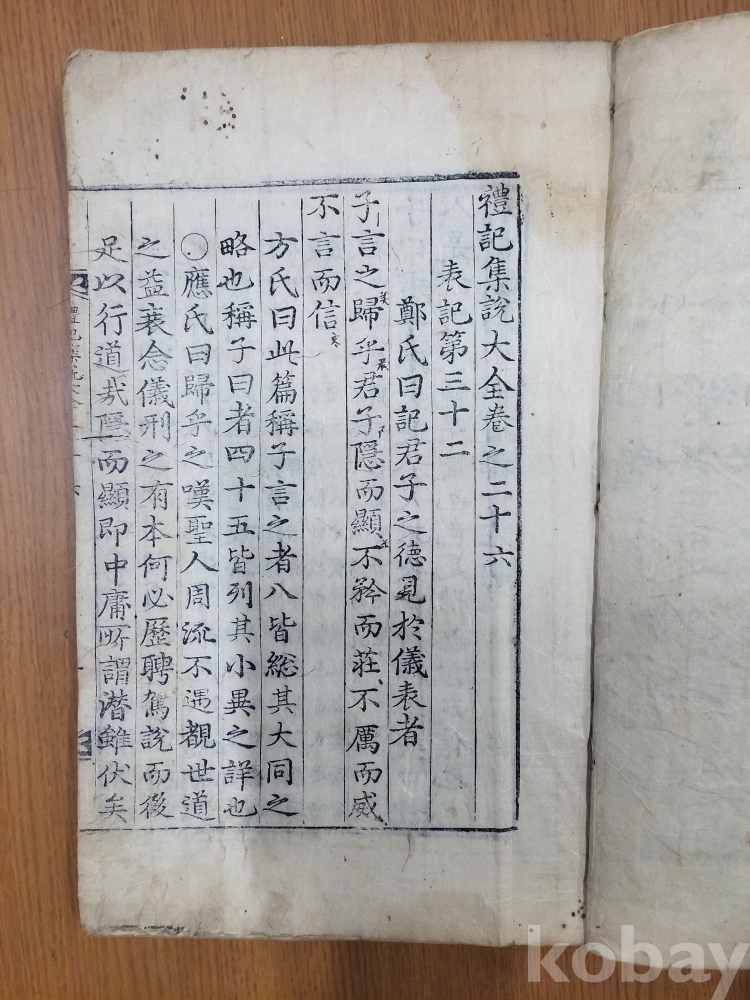 禮記集說大全卷之二十六
表記第三十二
鄭氏曰記君子之德見於儀表者
子言之歸乎君子隱而顯不矜而莊不厲而威
不言而信
方氏曰此篇稱子言之者八皆總其大同之
略也稱子曰者四十五皆列其小異之詳也
○應氏曰歸乎之嘆聖人周流不遇覩世道
之益衰念儀刑之有本何必歷聘駕說而後
足以行道哉隱而顯即中庸所謂潛雖伏矣
kobay